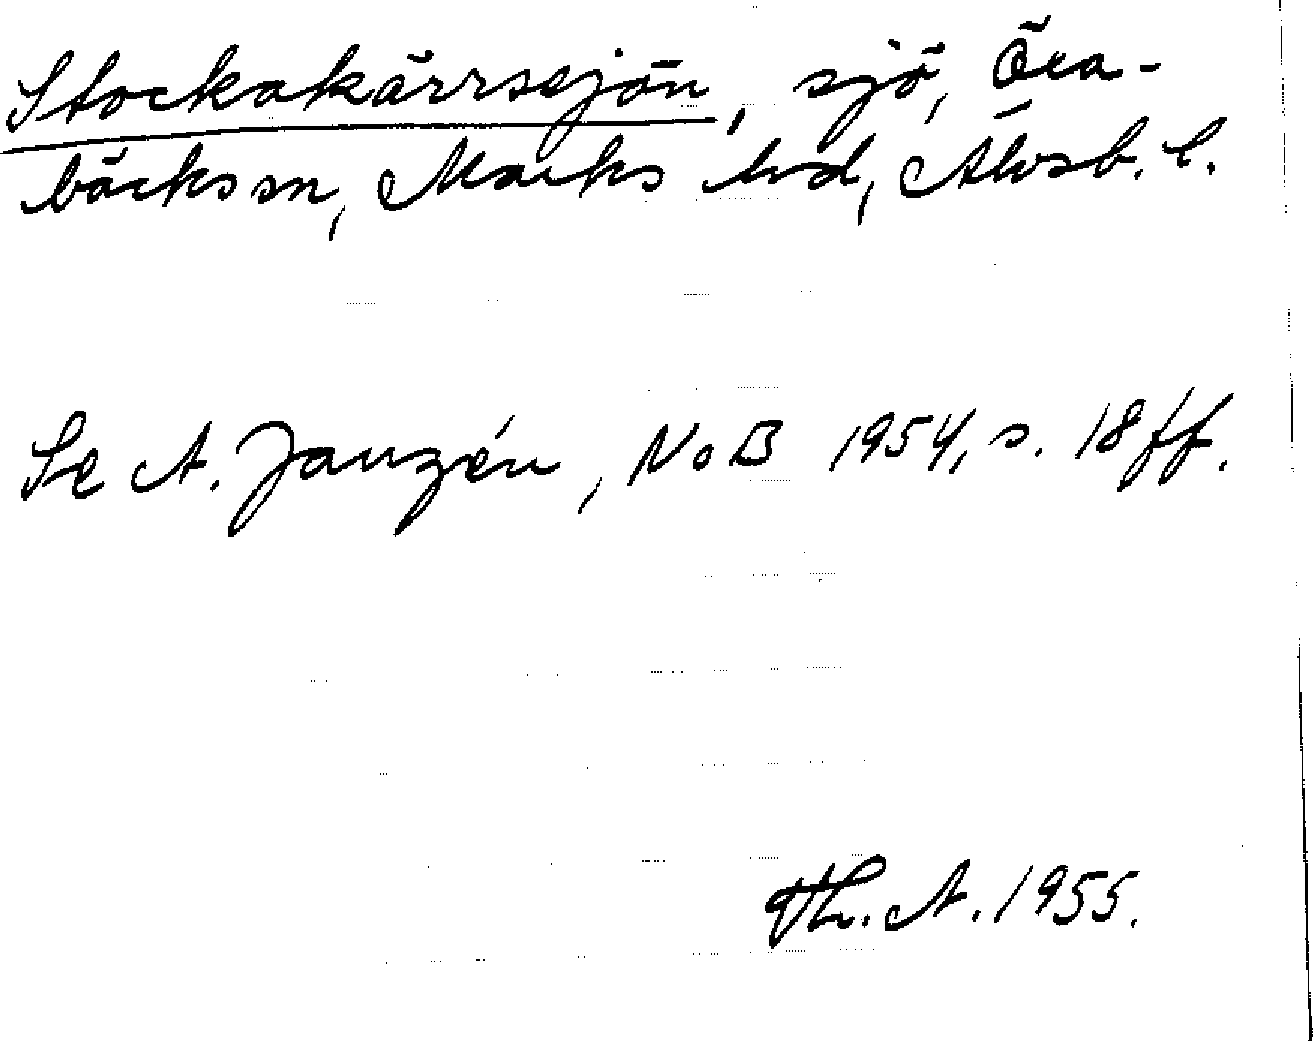 Stockakärrsejön, sjö, Öxa-
bäcks sn, Marks hd, Älvsb. l.
Se A. Janzén, NoB 1954, s. 18 ff.
Th. A. 1955.